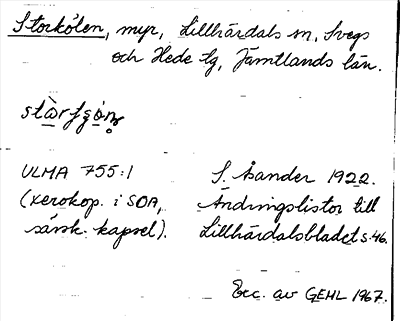 Storkölen, myr, Lillhärdals sn, Svegs
och Hede tg, Jämtlands län.
ULMA 755:1
(xerokop. i SOA,
särsk. kapsel).
S. Zander 1922.
Ändringslistor till
Lillhärdalsbladet s 46.
Exc. av GEHL 1967.